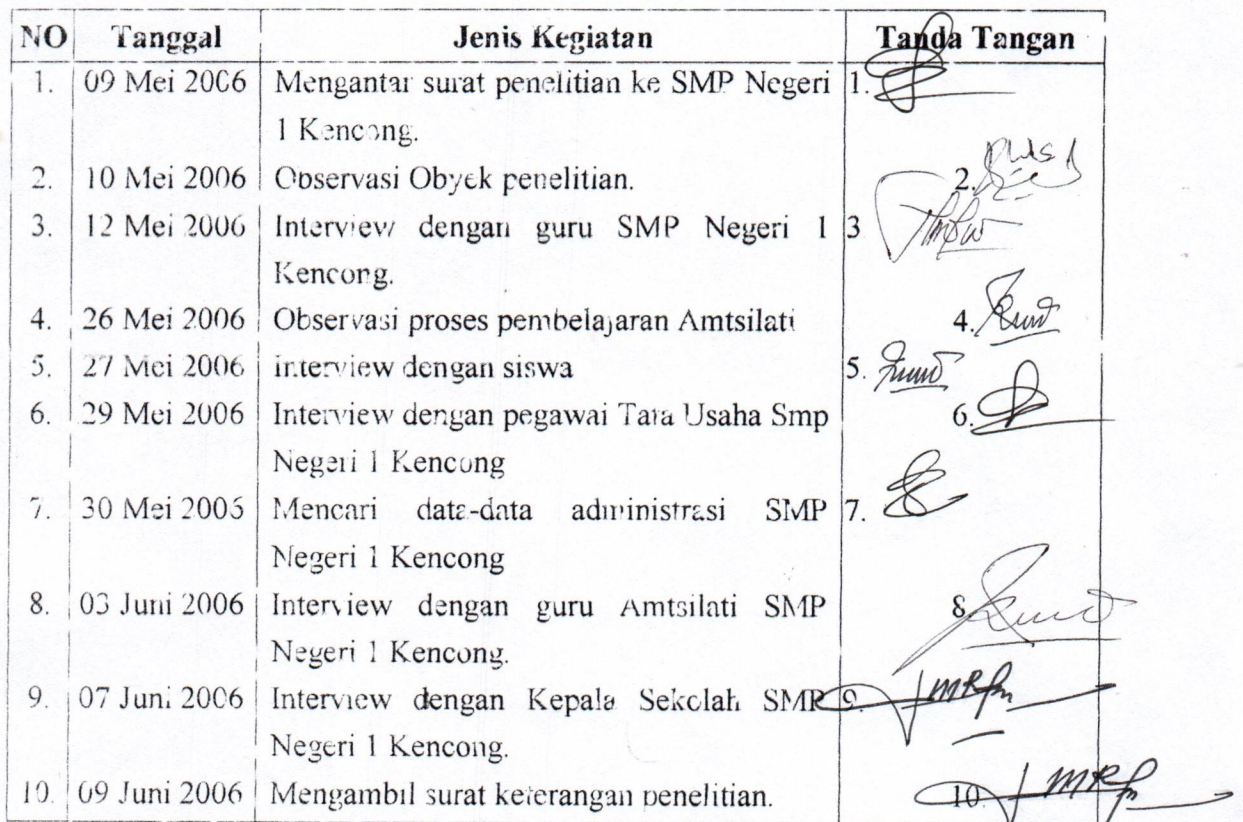 NO Tanggal Jenis Kegiatan Tanda Tangan
1. 09 Mei 2006 Mengantar surat penelitian ke SMP Negeri 1.
1 Kencong.
2. 10 Mei 2006 Observasi Obyek penelitian. 2.
3. 12 Mei 2006 Interview dengan guru SMP Negeri 1 3
Kencong.
4. 26 Mei 2006 Observasi proses pembelajaran Amtsilati 4.
5. 27 Mei 2006 interview dengan siswa 5.
6. 29 Mei 2006 Interview dengan pegawai Tata Usaha Smp 6.
Negeri 1 Kencong
7. 30 Mei 2006 Mencari data-data administrasi SMP 7.
Negeri 1 Kencong
8. 03 Juni 2006 Interview dengan guru Amtsilati SMP 8.
Negeri 1 Kencong.
9. 07 Juni 2006 Interview dengan Kepala Sekolah SMP 9.
Negeri 1 Kencong.
10. 09 Juni 2006 Mengambil surat keterangan penelitian. 10.